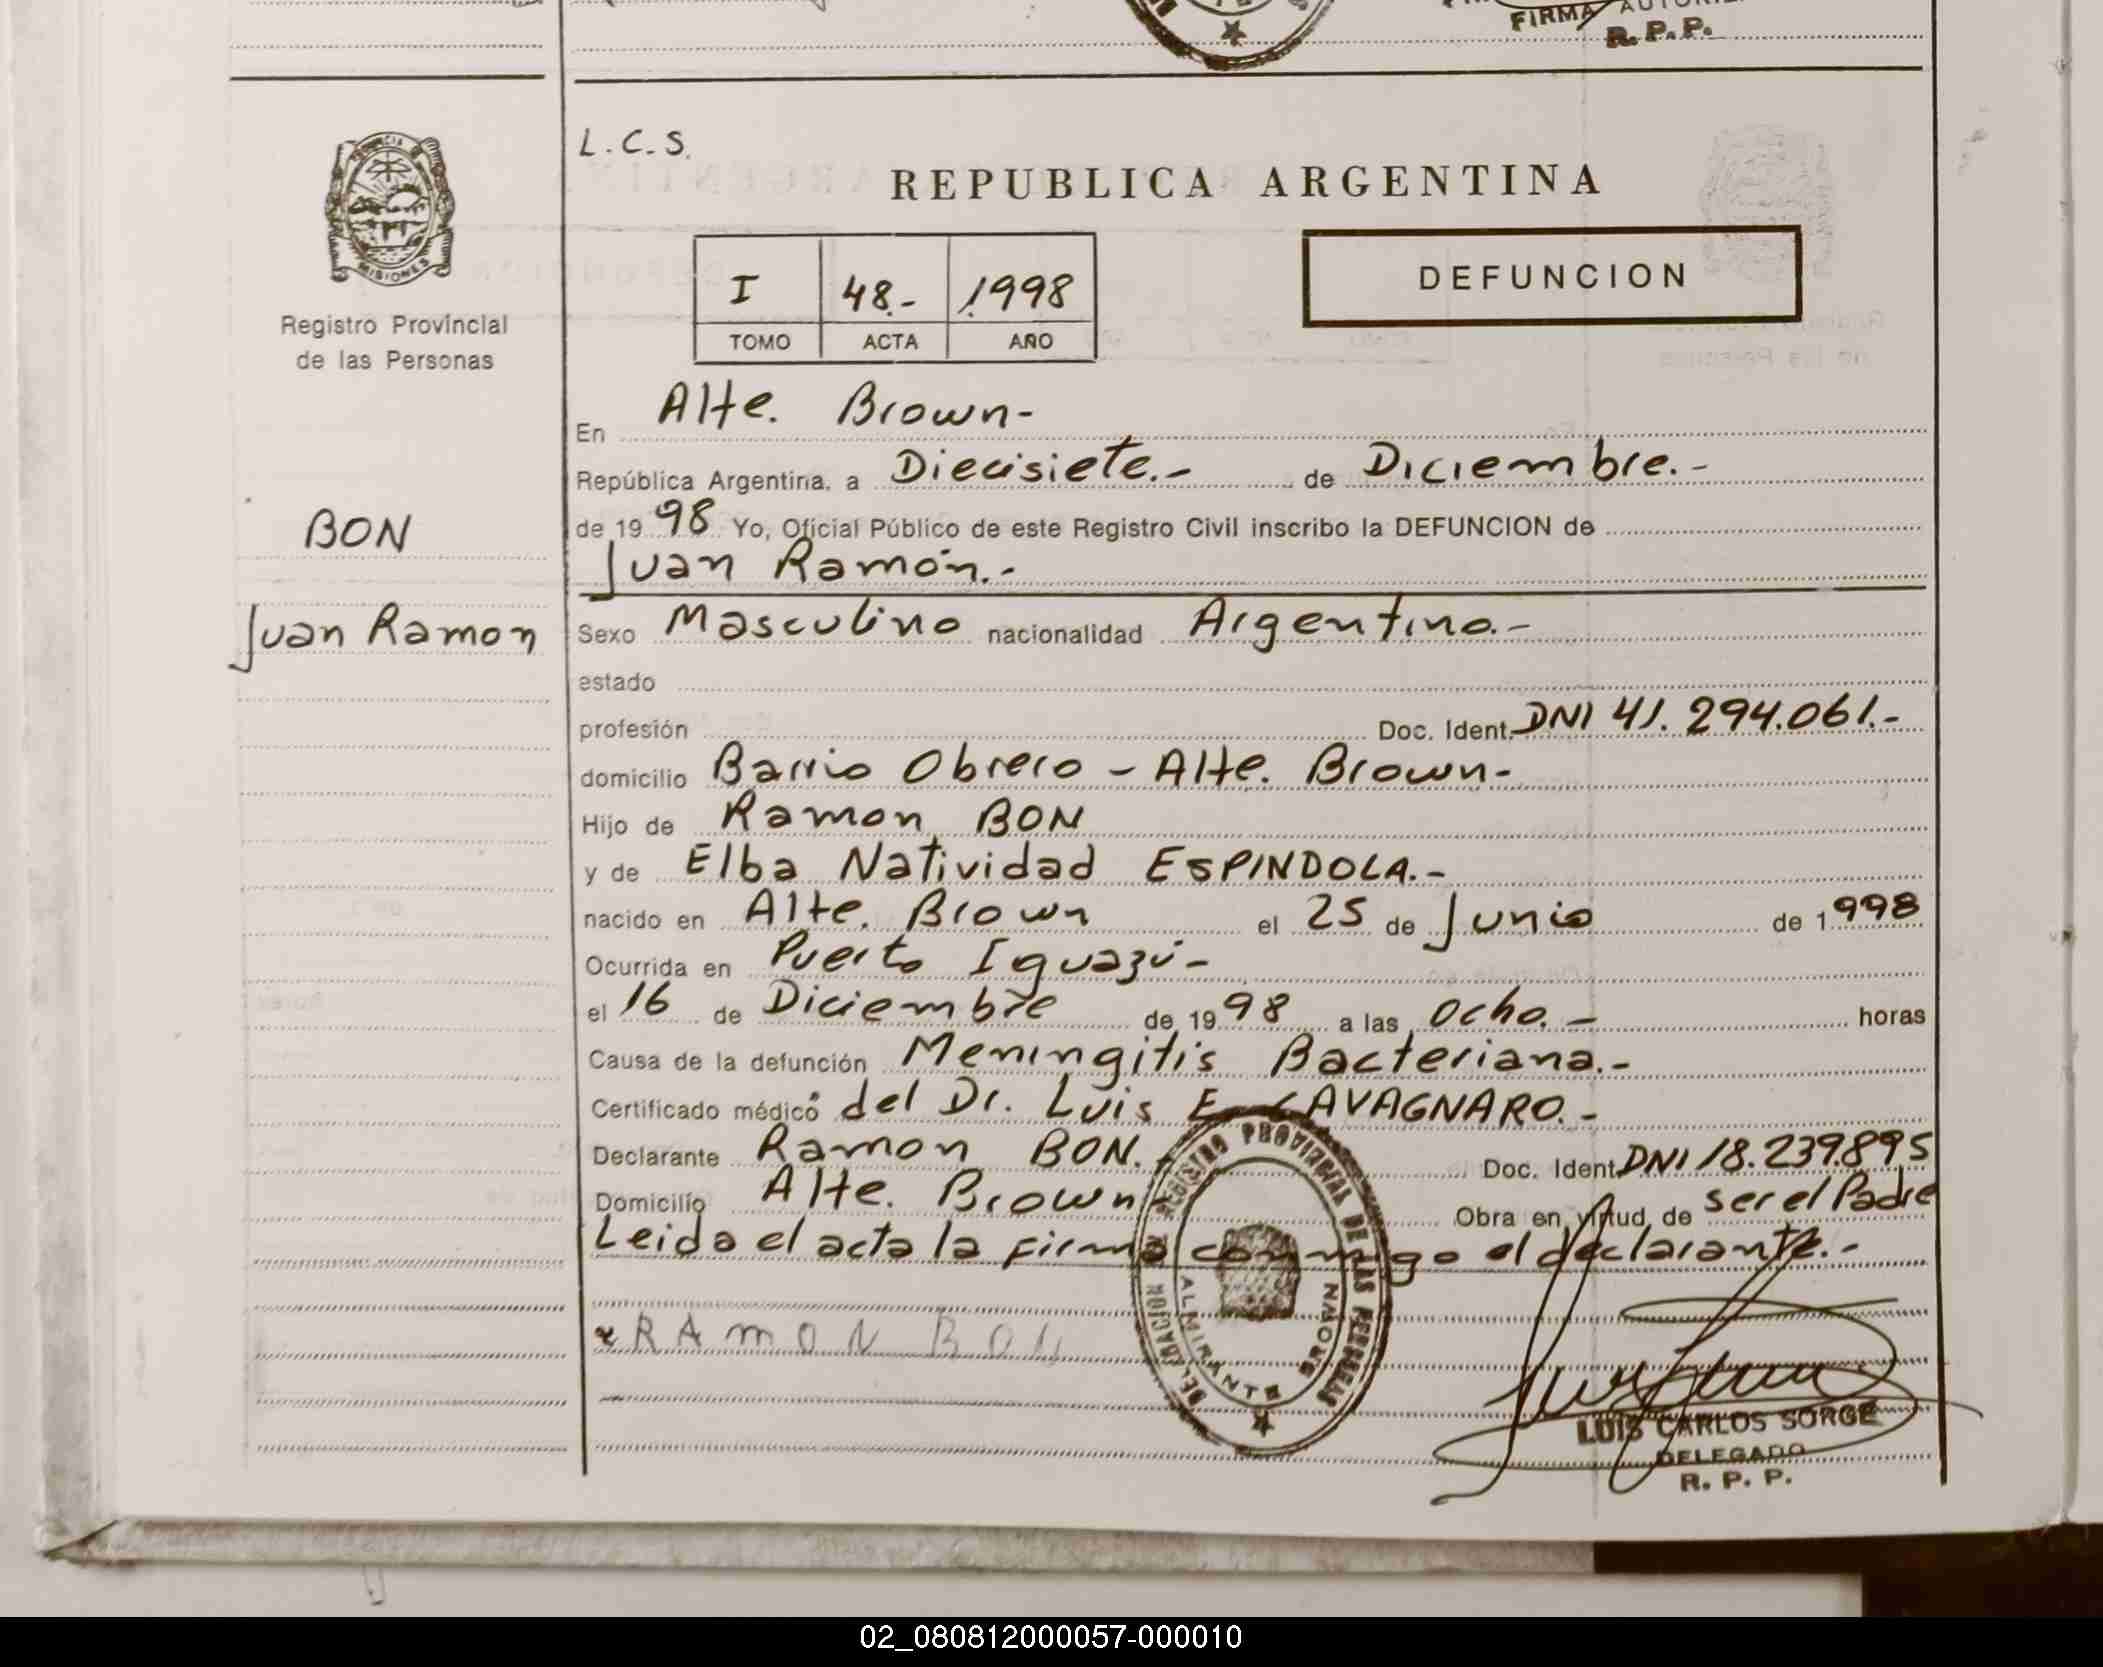 FIRMA
R. P. P.
L.C.S.
REPUBLICA ARGENTINA
PROVINCIA DE
MISIONES
Registro Provincial
de las Personas
I 48.- 1998
TOMO ACTA AÑO
DEFUNCION
En Alte. Brown-
República Argentina, a Diecisiete.- de Diciembre.-
de 19 98 Yo, Oficial Público de este Registro Civil inscribo la DEFUNCION de
BON
Juan Ramón.-
Juan Ramon
Sexo Masculino nacionalidad Argentino.-
estado
profesión Doc. Ident. DNI 41.294.061.-
domicilio Barrio Obrero - Alte. Brown-
Hijo de Ramon BON
y de Elba Natividad ESPINDOLA.-
nacido en Alte. Brown el 25 de Junio de 1998
Ocurrida en Puerto Iguazú-
el 16 de Diciembre de 19 98 a las ocho.- horas
Causa de la defunción Meningitis Bacteriana.-
Certificado médico del Dr. Luis E. CAVAGNARO.-
Declarante Ramon BON. Doc. Ident. DNI 18.239.895
Domicilio Alte. Brown Obra en virtud de ser el Padre
Leida el acta la firma conmigo el declarante.-
REGISTRO PROVINCIAL DE LAS PERSONAS
DELEGACION
ALMIRANTE BROWN
RAMON BON
LUIS CARLOS SORGE
DELEGADO
R. P. P.
02_080812000057-000010